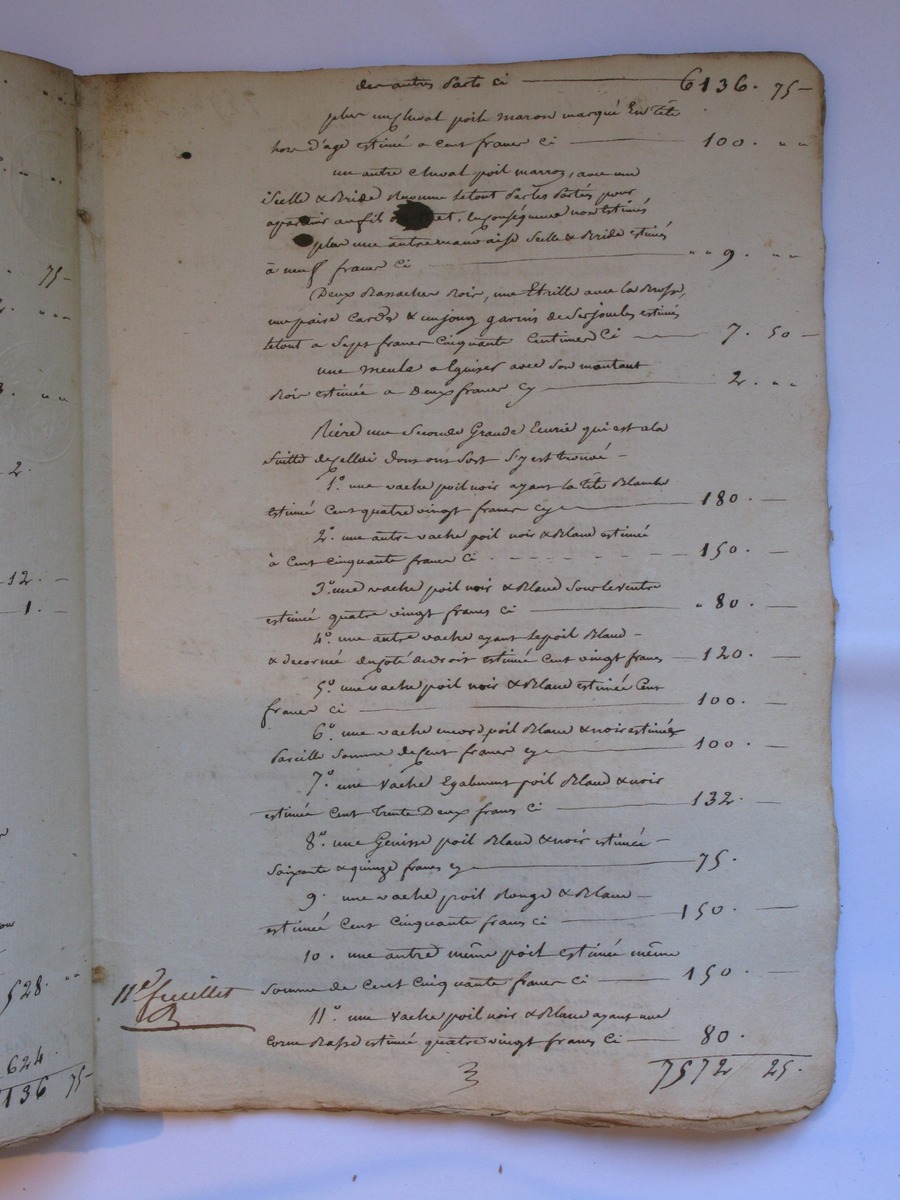 75-
" "
" "
3. " "
2.
12. -
1. -
528. " "
624.
136 75-
des autres parts ci — 6136. 75-
plus un cheval poil maron marqué En tête
hors d'age estimé a Cent francs Ci — 100. " "
un autre cheval poil marron, avec une
Selle & Bride le tout
apartenir au fil non estimés
plus une autre mauvaise Selle & Bride estimés
à neuf francs Ci — " " 9. " "
Deux Bois, une Etrille avec la Brosse,
une paire & un joug garnis de Ses estimés
le tout a Sept francs Cinquante Centimes Ci — 7. 50 -
une meule a Eguiser avec Son montant
Bois estimée a Deux francs Cy — 2. " "
Riere une Seconde Grande Ecurie qui est a la
Suitte de celle dont on Sort S'y est trouvé -
1° une vache poil noir ayant la tête Blanche
estimé Cent quatre vingt francs Cy — 180. -
2° une autre vache poil noir & Blanc estimé
à Cent Cinquante francs Ci — 150. -
3° une vache poil noir & Blanc Sous le ventre
estimé quatre vingt francs Ci — " 80. -
4° une autre vache ayant le poil Blanc -
& decorné du coté de droit estimé Cent vingt francs — 120. -
5° une vache poil noir & Blanc estimée Cent
francs Ci — 100. -
6° une vache poil Blanc & noir estimés
Pareille Somme de Cent francs Cy — 100. -
7° une vache Egalement poil Blanc & noir
estimée Cent trente Deux francs Ci — 132. -
8° une Genisse poil Blanc & noir estimée -
Soixante & quinze francs Cy — 75. -
9. une vache poil Rouge & Blanc -
estimé Cent Cinquante francs Ci — 150. -
10. une autre même poil estimée même
Somme de Cent Cinquante francs Ci — 150. -
11e feuillet
11° une vache poil noir & Blanc ayant une
Corne Basse estimé quatre vingt francs Ci — 80.
7572 25.